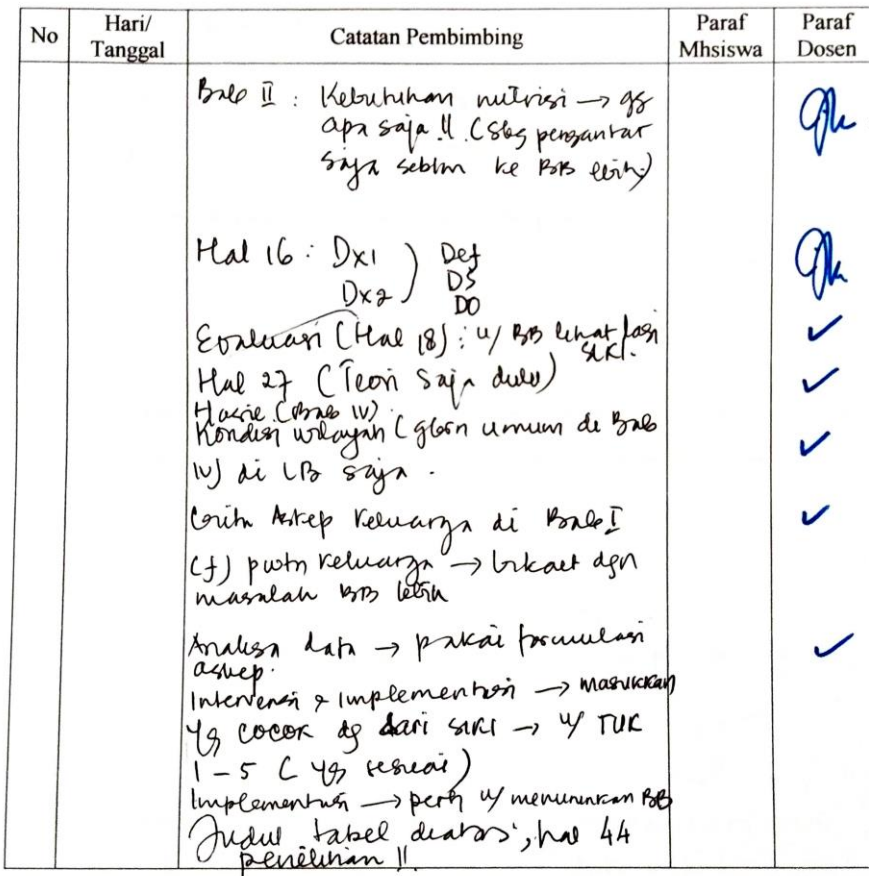 No
Hari/ Tanggal
Catatan Pembimbing
Paraf Mhsiswa
Paraf Dosen
Bab II : Kebutuhan nutrisi → gg
apa saja !! (sbg pengantar
saja seblm ke BB lebih)
Hal 16 : Dx1 ) Def
Dx2 DS
DO
Evaluasi (Hal 18) : u/ BB lihat dari
SLKI.
Hal 27 (Teori saja dulu)
Hasil (Bab IV)
Kondisi wilayah (gbrn umum di Bab
IV) di LB saja.
Askep keluarga di Bab I
(f) keluarga → dgn
masalah BB lebih
Analisa data → pakai formulasi
askep.
Intervensi & Implementasi → masukkan
yg cocok dg dari SIKI → u/ TUK
1-5 (yg sesuai)
Implementasi → u/ menurunkan BB
Judul tabel diatas, hal 44
penelitian !!